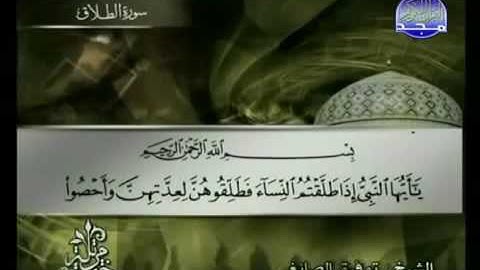 سورة الطلاق
مجد
بِسْمِ ٱللَّهِ ٱلرَّحْمَٰنِ ٱلرَّحِيمِ
يَٰٓأَيُّهَا ٱلنَّبِىُّ إِذَا طَلَّقْتُمُ ٱلنِّسَآءَ فَطَلِّقُوهُنَّ لِعِدَّتِهِنَّ وَأَحْصُوا۟
الشيخ توفيق الصايغ